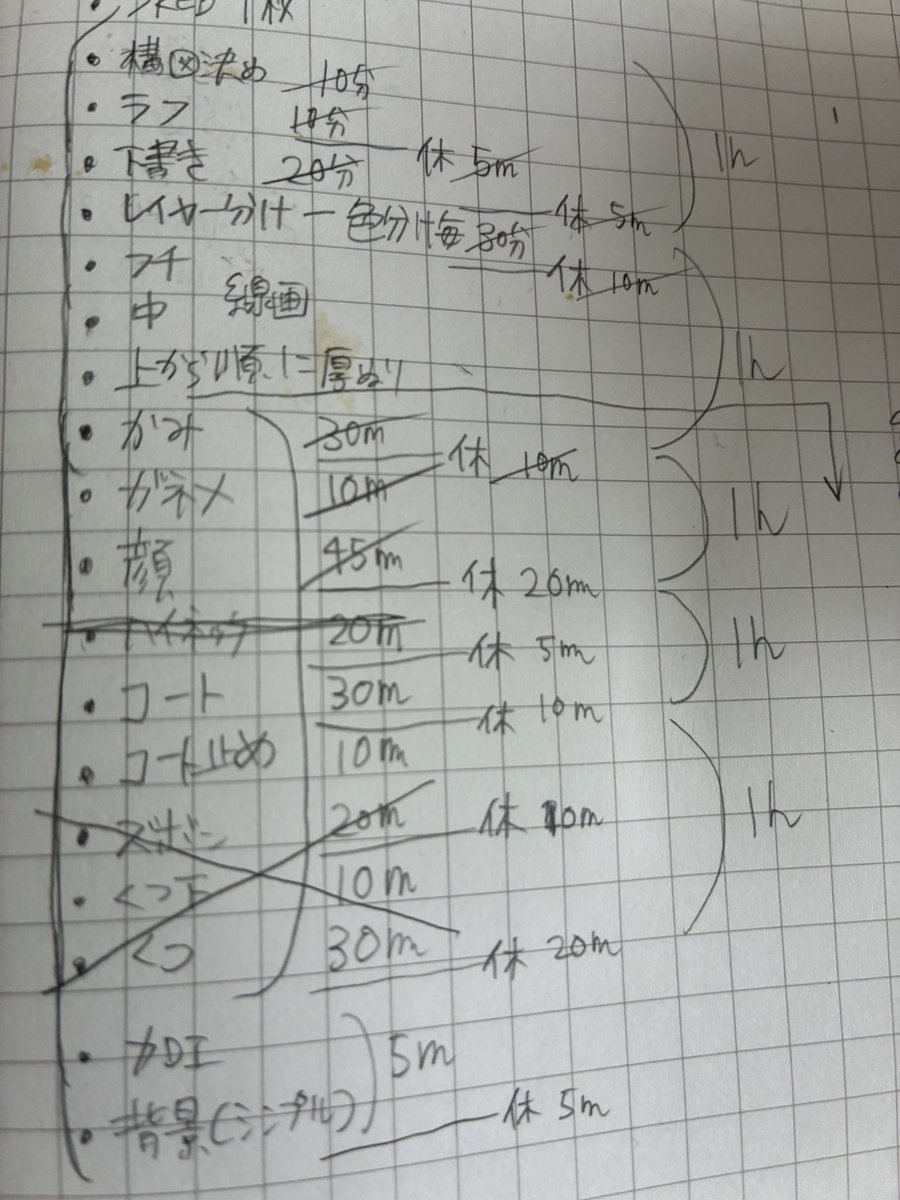 ・ 構図決め 10分
・ ラフ 10分
・ 下書き 20分 休 5m
・ レイヤー分け ー 色分け毎 30分 休 5m
・ フチ 休 10m
・ 中 線画
・ 上から順に厚ぬり
・ かみ 30m 休 10m
・ ガネメ 10m
・ 顔 45m 休 20m
・ ハイネック 20m 休 5m
・ コート 30m 休 10m
・ コート止め 10m
・ ズボン 20m 休 10m
・ くつ下 10m
・ くつ 30m 休 20m
・ カロエ 5m
・ 背景(シンプル) 休 5m
1h
1h
1h
1h
1h